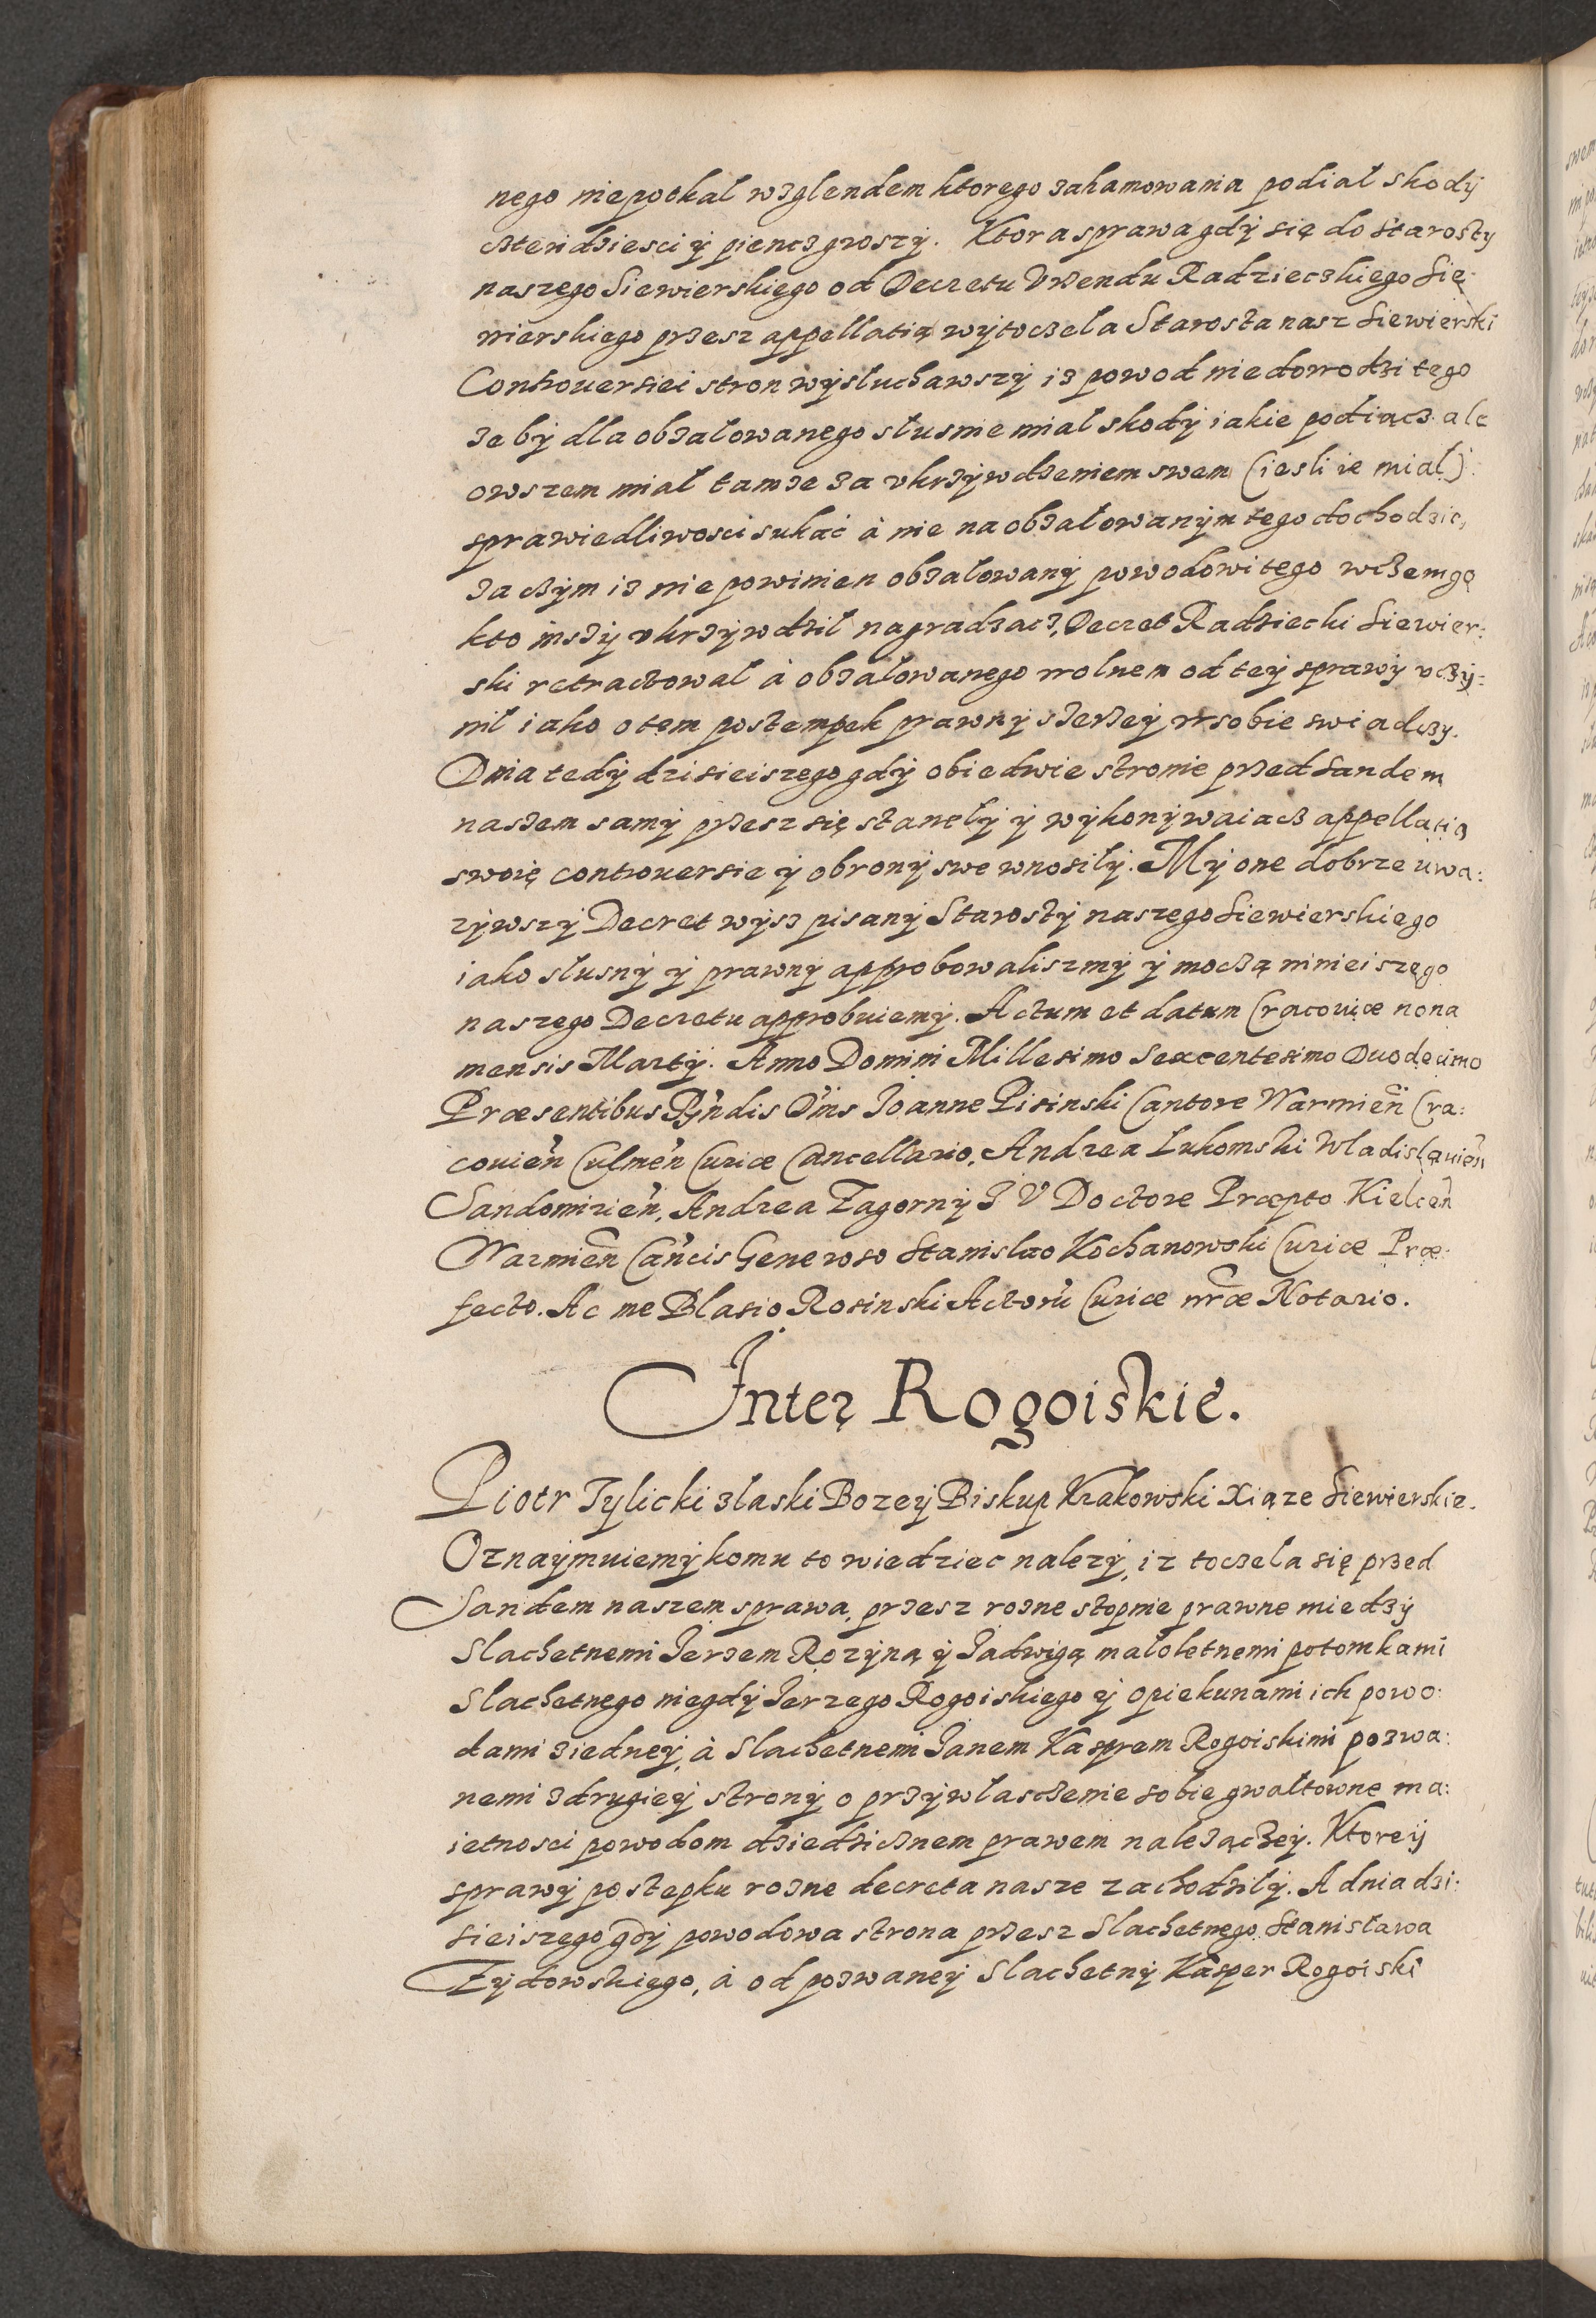 nego niepotkal wzglendem ktorego zahamowania podial skody
czteridziesci ÿ piencz groszÿ. Ktora sprawa gdÿ się do Starosty
naszego Siewierskiego od Decretu Vrzendu Radzieczkiego Sie:
wierskiego przesz appellatią wÿtoczela Starosta nasz Siewierski
Controuersiei stron wÿsluchawszÿ iz powod niedowodzi tego
zebÿ dla obzałowanego słusnie miał skodÿ iakie podiącz ale
owszem miał tamze za vkrzÿwdzeniem swem (iesli ie miał)
sprawiedliwosci sukać à nie na obzałowanÿm tego dochodzic,
za czÿm iz nie powinien obzałowanÿ powodowi tego wczem go
kto inszÿ vkrzÿwdził nagradzacz, Decret Radziecki Siewier:
ski retractował à obzałowanego wolnem od teÿ sprawÿ vczÿ:
nił iako o tem postempek prawnÿ szerzeÿ w sobie swiadczy.
Dnia tedÿ dzisieiszego gdÿ obiedwie stronie przed Sandem
naszem samÿ przesz się stanełÿ ÿ wÿkonÿwaiacz appellatią
swoię controuersie ÿ obronÿ swe wnosiłÿ. Mÿ one dobrze uwa:
zÿwszÿ Decret wÿsz pisanÿ Starostÿ naszego Siewierskiego
iako słusnÿ ÿ prawnÿ approbowaliszmÿ ÿ moczą ninieiszego
naszego Decretu approbuiemÿ. Actum et datum Cracouiæ nona
mensis Martÿ. Anno Domini Millesimo Sexcentesimo Duodecimo
Præsentibus Rndis Dnis Ioanne Pisinski Cantore Warmień Cra:
couień Culmeń Curiæ Cancellario, Andrea Łukomski Wladislauień
Sandomirień, Andrea Zagornÿ I V Doctore Præpto Kielceń
Warmień Cańcis Generoso Stanislao Kochanowski Curiæ Præ:
fecto. Ac me Blasio Rosinski Actorũ Curiæ nr̃æ Notario.
Inter Rogoiskie.
Piotr Tylicki z łaski Bozeÿ Biskup Krakowski Xiąze Siewierskie.
Oznaÿmuiemÿ komu to wiedziec nalezÿ, iz toczela się przed
Sandem naszem sprawa, przesz rozne stopnie prawne miedzÿ
Slachetnemi Ierzem Rozÿną ÿ Iadwigą małoletnemi potomkami
Slachetnego niegdÿ Ierzego Rogoiskiego ÿ opiekunami ich powo:
dami z iedneÿ, à Slachetnemi Ianem Kasprem Rogoiskimi pozwa:
nemi z drugieÿ stronÿ o przÿwlasczenie sobie gwałtowne ma:
ietnosci powodom dziedzicznem prawem nalezączeÿ. Ktoreÿ
sprawÿ postepku rozne decreta nasze zachodziłÿ. A dnia dzi:
sieiszego gdÿ powodowa strona przesz Slachetnego Stanisława
Zydowskiego, à od pozwaneÿ Slachetnÿ Kasper Rogoiski